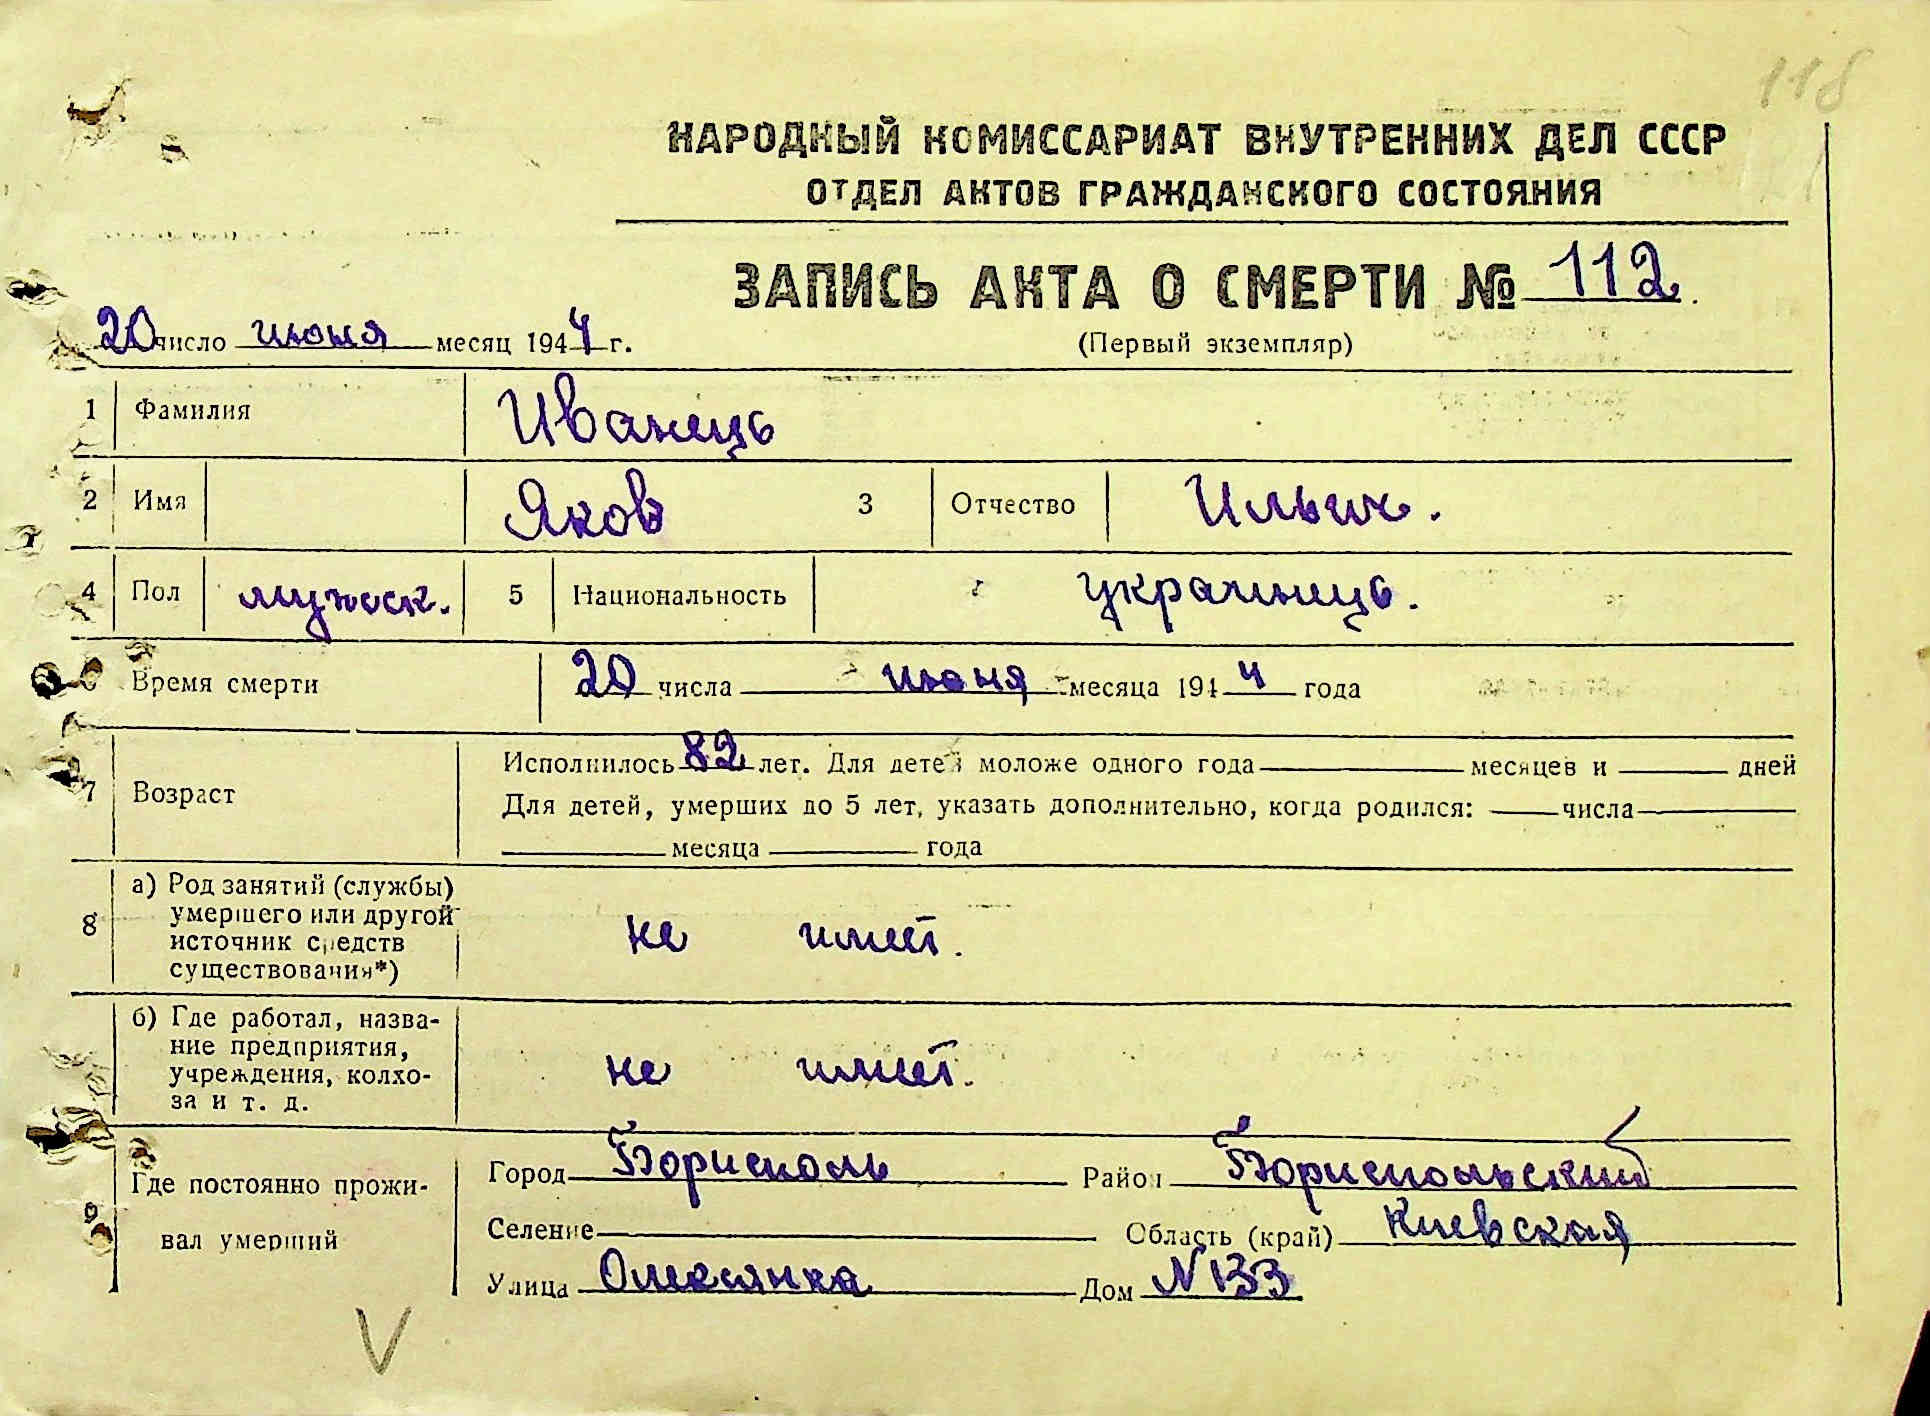 118
НАРОДНЫЙ КОМИССАРИАТ ВНУТРЕННИХ ДЕЛ СССР
ОТДЕЛ АКТОВ ГРАЖДАНСКОГО СОСТОЯНИЯ
ЗАПИСЬ АКТА О СМЕРТИ № 112.
20 число июня месяц 1944 г.
(Первый экземпляр)
1 Фамилия Иванець
2 Имя Яков 3 Отчество Ильич.
4 Пол мужск. 5 Национальность украинець.
6 Время смерти 20 числа июня месяца 1944 года
7 Возраст Исполнилось 82 лет. Для детей моложе одного года месяцев и дней
Для детей, умерших до 5 лет, указать дополнительно, когда родился: числа
месяца года
8 а) Род занятий (службы)
умершего или другой
источник средств
существования*)
не имеет.
б) Где работал, назва-
ние предприятия,
учреждения, колхо-
за и т. д.
не имеет.
9 Где постоянно прожи-
вал умерший
Город Борисполь Район Бориспольский
Селение Область (край) Киевская
Улица Дом № 133
V